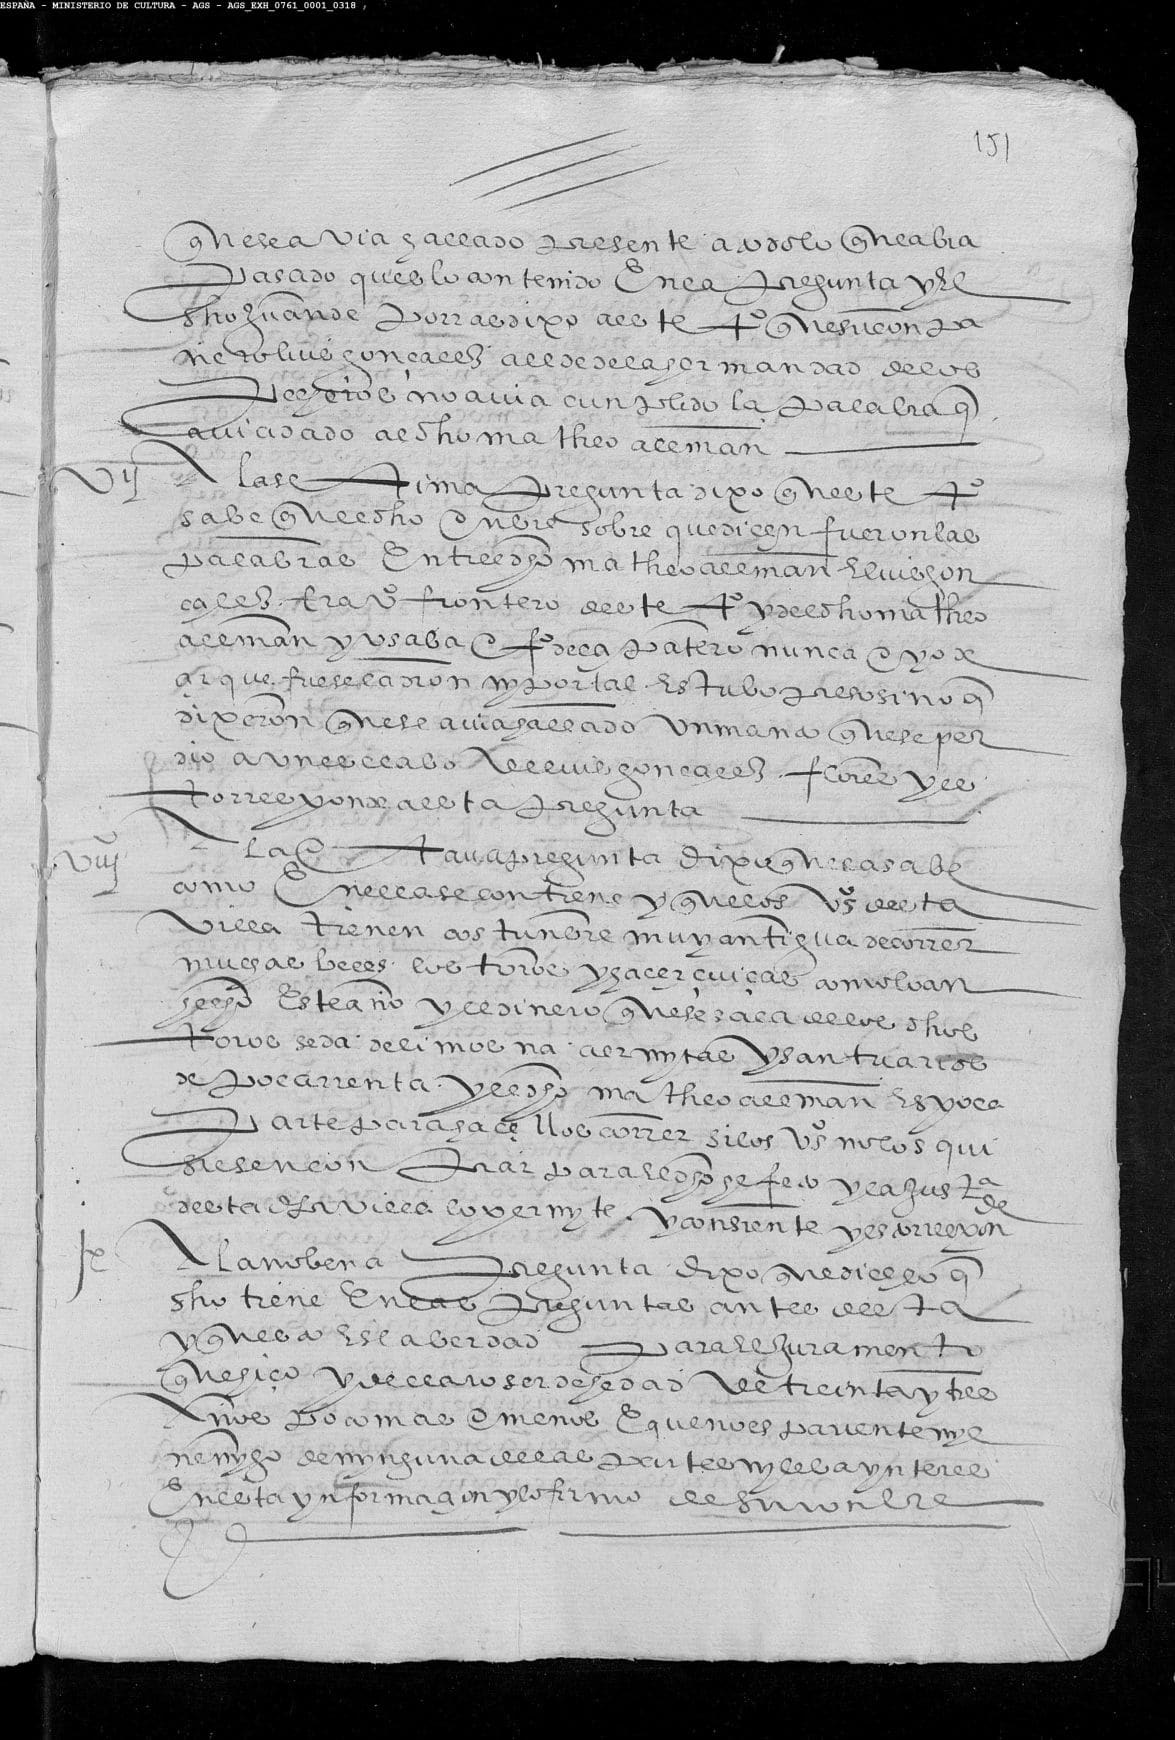 ESPAÑA - MINISTERIO DE CULTURA - AGS - AGS_EXH_0761_0001_0318 ,
151
que se avia hallado presente a todo lo que abia
pasado que es lo contenido En la pregunta y El
dho Juan de porras dixo a este tº que su conpa
ñero luis gonçalez allde de la hermandad de los
pecheros no avia cunplido la palabra q
avia dado al dho matheo aleman
Vij A la setima pregunta dixo que este tº
sabe que el dho onbre sobre que dicen fueron las
palabras Entre el dho matheo aleman E luis gon
çalez Era vº frontero deste tº y del dho matheo
aleman y usaba ofº de çapatero nunca oyo de
zir que fuese ladron ny por tal Estubo preso sino q
dixeron que se avia hallado un manto que se per
dio a un esclabo de luis gonçalez y el
torres ponde a esta pregunta
Viij A la otava pregunta dixo que la sabe
como En ella se contiene y que los vºs desta
villa tienen costunbre muy antigua de correr
muchas beces los toros y hacer çuiças como lo an
hecho Este año y el dinero que se saca de los dhos
toros se da de limosna a ermytas y santuarios
de poca renta y el dho matheo aleman Es poca
parte para hacellos correr si los vºs no los qui
siesen conprar para El dho hefeto y la justª
desta dha villa lo permyte y consiente y esto rrespon de
ix A la nobena pregunta dixo que dice lo q
dho tiene En las preguntas antes desta
y que esto Es la berdad para El juramento
que hiço y declaro ser de hedad de treinta y tres
años poco mas o menos E que no es pariente ny E
nemygo de nynguna de las partes ny lleba ynteres
En esta ynformaçion y lo firmo de su nonbre